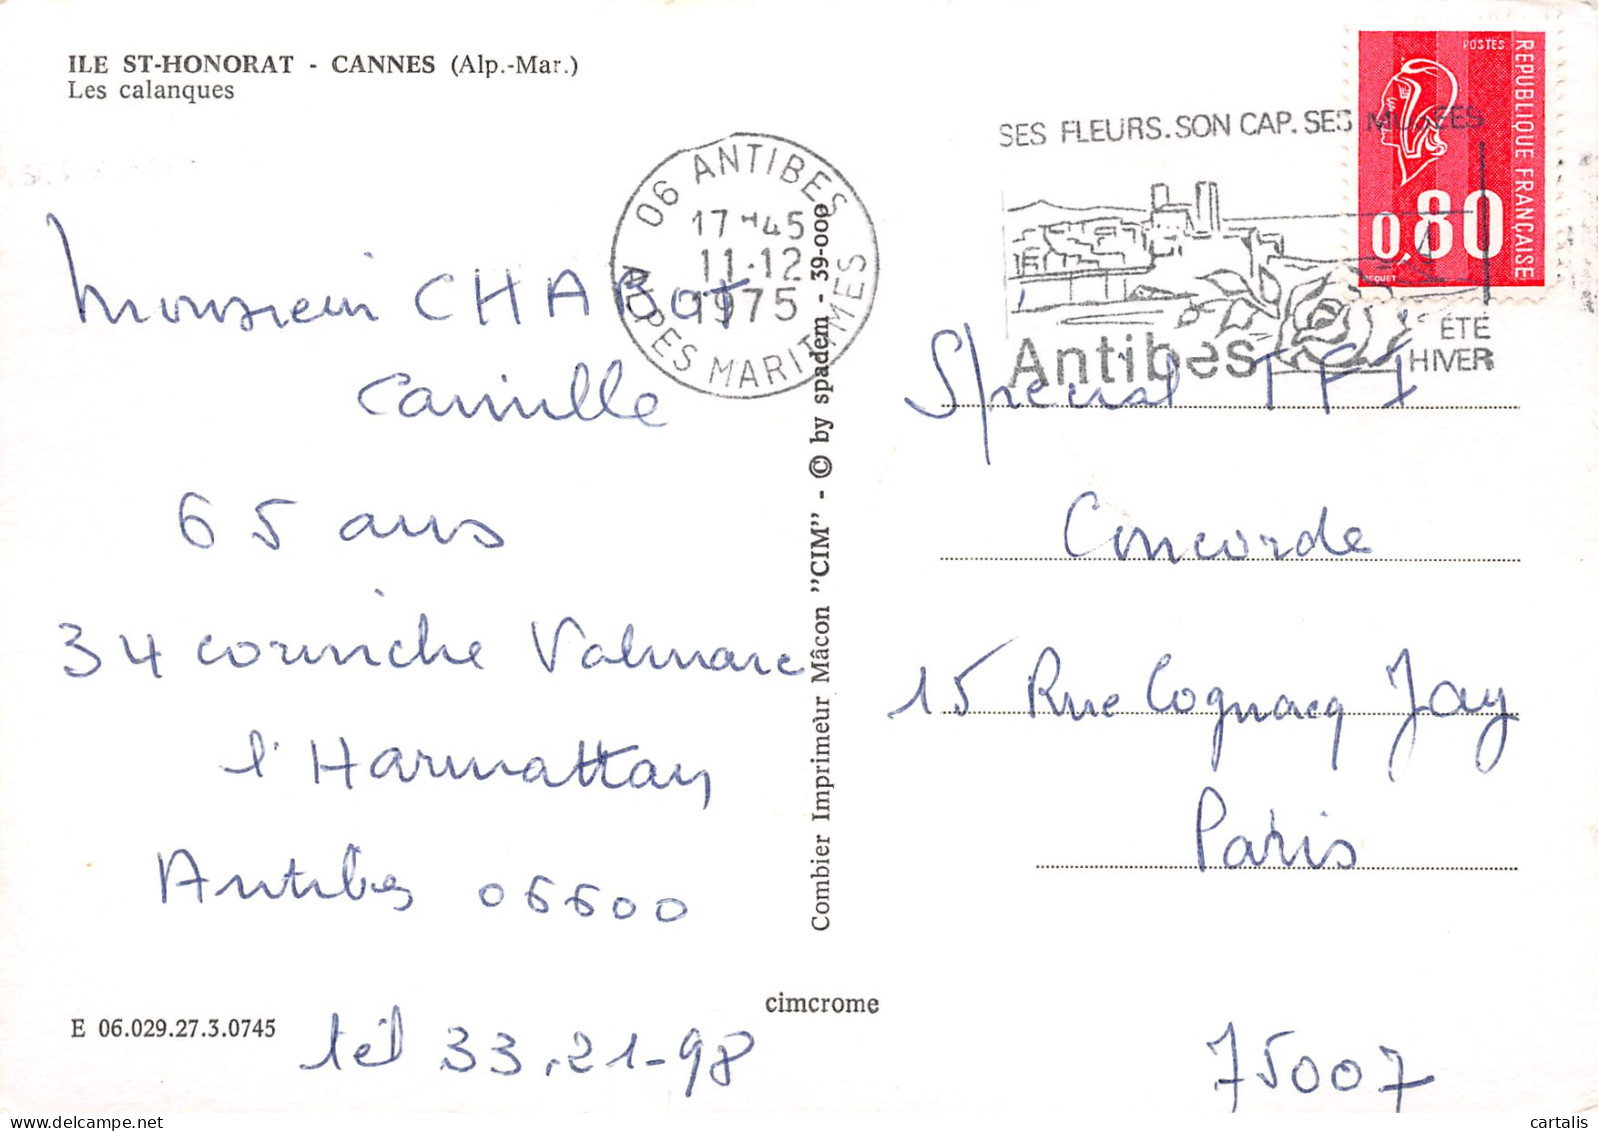 ILE ST-HONORAT - CANNES (Alp.-Mar.)
Les calanques
06 ANTIBES
17H45
11-12
1975
ALPES MARITIMES
SES FLEURS. SON CAP. SES MUSEES
Antibes
ÉTÉ
HIVER
POSTES
REPUBLIQUE FRANÇAISE
0,80
BEQUET
Monsieur CHABOT
Camille
65 ans
34 corniche Valmare
l'Harmattan
Antibes 06600
tél 33.21-98
Combier Imprimeur Mâcon "CIM" - © by spadem - 39-000
Spécial TF1
Concorde
15 Rue Cognacq Jay
Paris
75007
E 06.029.27.3.0745
cimcrome
cartalis